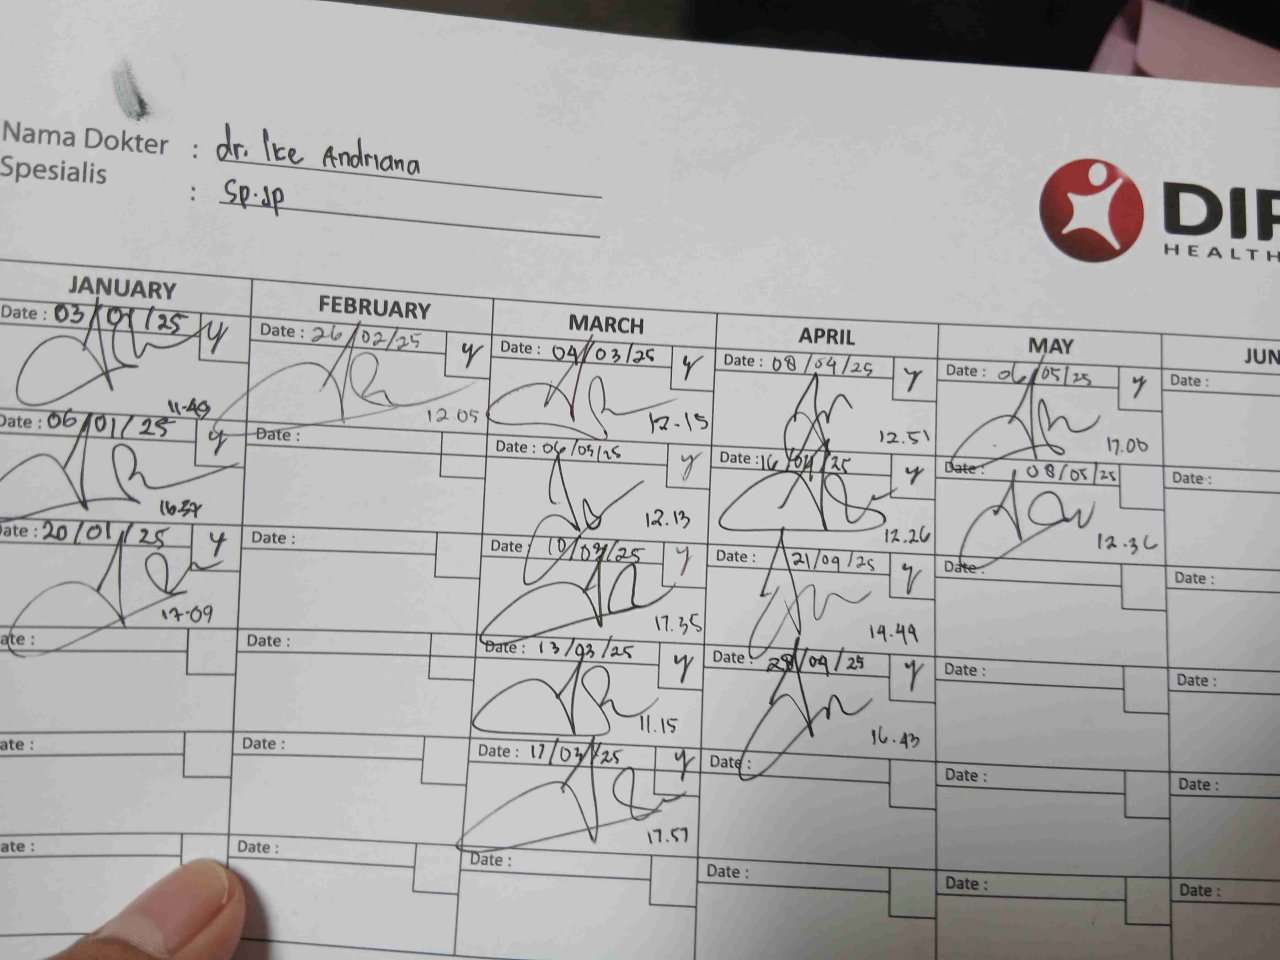 Nama Dokter : dr. Ike Andriana
Spesialis : Sp.Jp
DIP
HEALTH
JANUARY FEBRUARY MARCH APRIL MAY JUN
Date : 03/01/25 y Date : 26/02/25 y Date : 04/03/25 y Date : 08/04/25 y Date : 06/05/25 y Date :
11.40 12.05 12.15 12.51 17.00
Date : 06/01/25 y Date : Date : 06/03/25 y Date : 16/04/25 y Date : 08/05/25 Date :
16.37 12.13 12.26 12.36
ate : 20/01/25 y Date : Date : 10/03/25 y Date : 21/04/25 y Date : Date :
17.09 17.35 14.44
ate : Date : Date : 13/03/25 y Date : 28/04/25 y Date : Date :
11.15 16.43
ate : Date : Date : 17/03/25 y Date : Date : Date :
17.57
ate : Date : Date : Date : Date : Date :